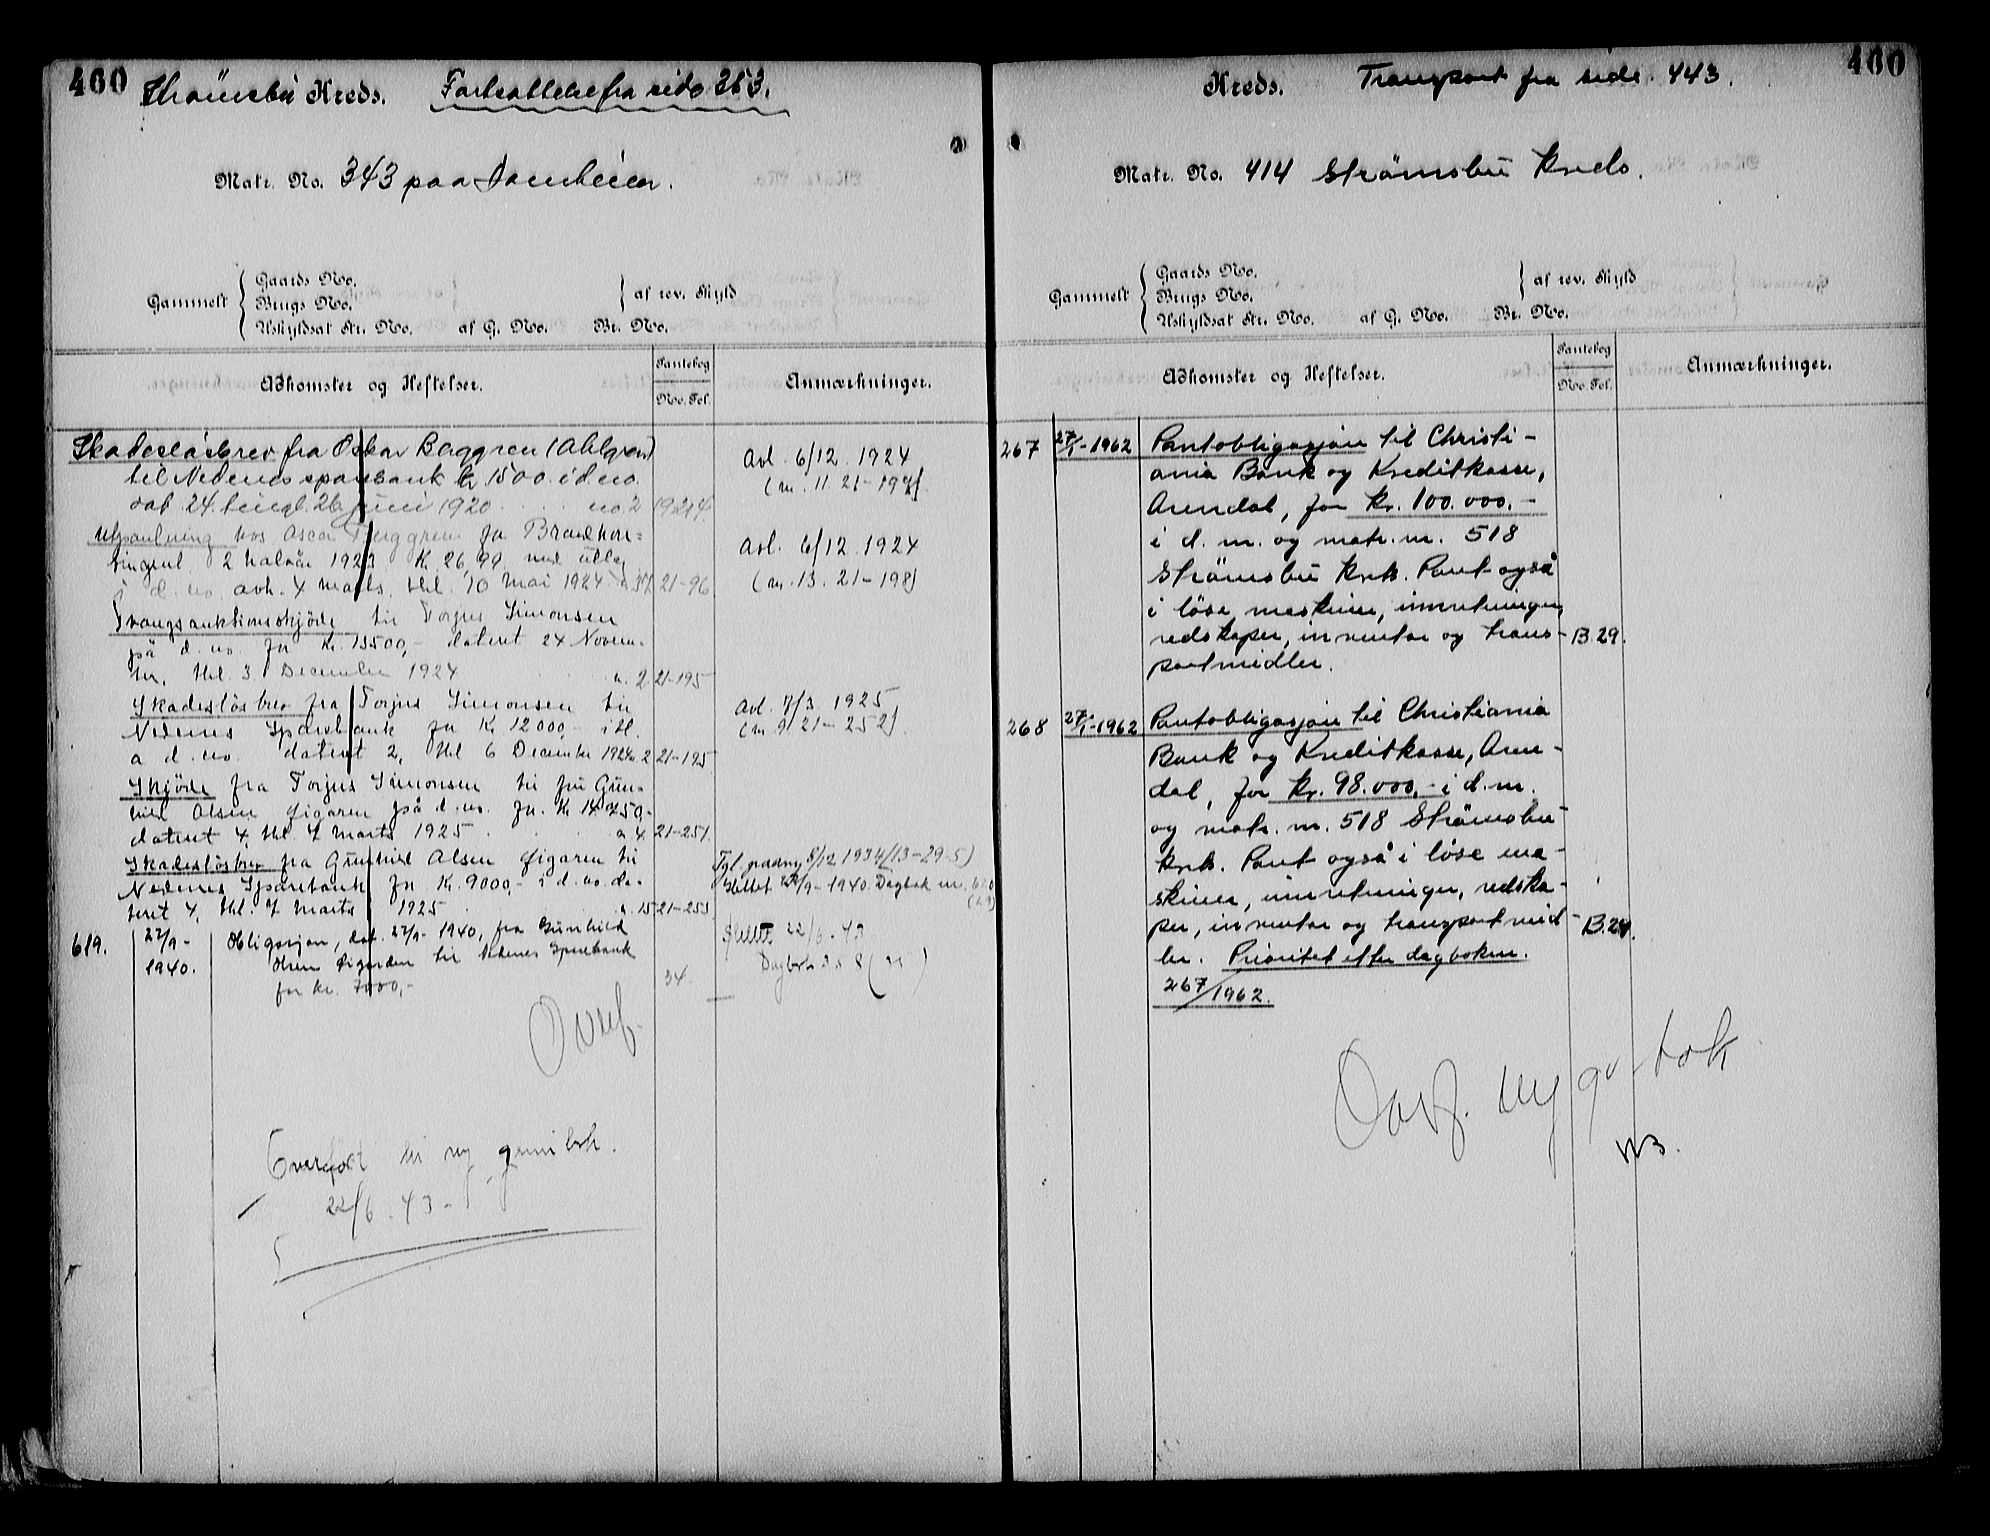 460
Strömsbu Kreds. Fortsættelse fra side 353.
Matr. No. 343 paa
Gammelt
Gaards No.
Brugs No.
Uskyldsat Str. No. af G. No. Br. No.
af rev. Skyld
Adkomster og Heftelser.
Pantebog
No. Fol.
Anmærkninger.
Skadesløsbrev fra Oskar Baggren (Ahlgren)
til Nedenes sparebank kr 1500. i d. no.
dat. 24. tingl. 26 juni 1920 no. 2 19-214
Avl. 6/12. 1924
(nr. 11 21-197)
Utpantning hos Oscar Baggren for Brandkon-
tingent 2 halvår 1923 K. 26,99 med utlæg
i d. no. avh. 4 marts, thl. 10 Mai 1924 n. 37 21-96
Avl. 6/12. 1924
(nr. 13. 21-198)
Tvangsauktionsskjøde til Torjus Simonsen
på d. no. for Kr. 13500,- datert 24 Novem-
ber, thl. 3. December 1924 n. 2 21-195
Skadesløsbrev fra Torjus Simonsen til
Nedenes Sparebank for Kr. 12000,- i tl.
a d. no. datert 2, thl 6 Decembr 1924 n 2 21-195
Avl. 7/3 1925
(nr. 9 21-252)
Skjøde fra Torjus Simonsen til fru Gun-
hild Olsen Øigaren på d. no. for Kr. 14250,-
datert 4, thl. 7 Marts 1925 n 4 21-251
Skadesløsbrev fra Gunhild Olsen Øigaren til
Nedenes Sparebank for Kr. 9000,- i d. no. da-
tert 4, thl. 7 Marts 1925 n. 15 21-253
Tgl. 8/12 1934 (13-29-5)
Slettet 27/9-1940. Dagbok nr. 620
619. 27/9-1940. Obligasjon, dat. 27/9-1940, fra Gunhild
Olsen Øigarden til Nedenes Sparebank
for kr. 7000,- 34.
Slettet 22/6-43
Dagbok 358
Overf.
Overført til ny grunnbok.
22/6. 43 -
460
Kreds. Transport fra side 443.
Matr. No. 414 Strömsbu Kreds.
Gammelt
Gaards No.
Brugs No.
Uskyldsat Str. No. af G. No. Br. No.
af rev. Skyld
Adkomster og Heftelser.
Pantebog
No. Fol.
Anmærkninger.
267 27/1-1962 Pantobligasjon til Christi-
ania Bank og Kreditkasse,
Arendal, for kr. 100.000,-
i d. nr. og matr. nr. 518
Strömsbu krets. Pant også
i löse maskiner, innretninger,
redskaper, inventar og trans- B. 29.
portmidler.
268 27/1-1962 Pantobligasjon til Christiania
Bank og Kreditkasse, Aren-
dal, for kr. 98.000,- i d. nr.
og matr. nr. 518 Strömsbu
krets. Pant også i löse ma-
skiner, innretninger, redska-
per, inventar og transportmid- B. 29.
ler. Prioritet etter dagboknr.
267/1962.
Overf. ny gr-bok